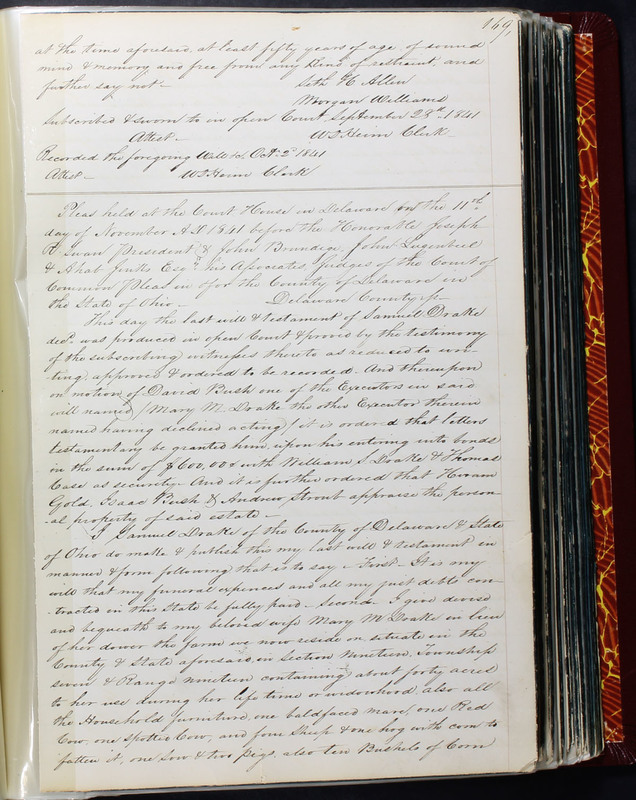 169,
at the time aforesaid, at least fifty years of age, of sound
mind & memory, and free from any kind of restraint, and
further say not –
Seth H Allen
Morgan Williams
Subscribed & sworn to in open Court September 28th 1841
Attest – W D Heim Clerk –
Recorded the foregoing Will &c. Oct. 2d 1841
Attest – W D Heim Clerk
Pleas held at the Court House in Delaware on the 11th
day of November A.D. 1841 before the Honorable Joseph
R. Swan President & John Brundige, John Lugenbeel
& Ahab Jinks Esqrs his Associates, Judges of the Court of
Common Pleas in & for the County of Delaware in
the State of Ohio – Delaware County ss –
This day the last will & testament of Samuel Drake
decd. was produced in open Court & proved by the testimony
of the subscribing witnesses thereto as reduced to wri-
-ting, approved & ordered to be recorded – And thereupon
on motion of David Bush one of the Executors in said
will named (Mary M. Drake the other Executor therein
named having declined acting) it is ordered that letters
testamentary be granted him, upon his entering into bonds
in the sum of $600,00 & with William S. Drake & Thomas
Case as security – And it is further ordered that Hiram
Gold, Isaac Bush & Andrew Strout appraise the person-
-al property of said estate –
I Samuel Drake of the County of Delaware & State
of Ohio do make & publish this my last will & testament in
manner & form following that is to say – First – It is my
will that my funeral expences and all my just debts con-
-tracted in this State be fully paid – Second – I give devise
and bequeath to my beloved wife Mary M. Drake in lieu
of her dower the farm we now reside on situate in the
County & State aforesaid, in Section Nineteen, Township
seven & Range nineteen containing about forty acres
to her use during her life time or widowhood, also all
the Household furniture, one baldfaced mare, one Red
Cow, one spotted Cow, and five Sheep & one hog with corn to
fatten it, one Sow & two pigs, also ten Bushels of Corn